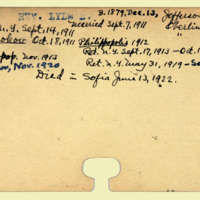 REV. LYLE D. B. 1879, Dec. 13, Jefferson
Married Sept. 7, 1911 Oberlin
N.Y. Sept. 14, 1911
Oct. 18, 1911 Philippopolis 1912
Nov. 1913 Ret. N.Y. Sept. 17, 1913 - Oct.
Nov. 1920 Ret. N.Y. May 31, 1919 - S
Died in Sofia June 13, 1922.